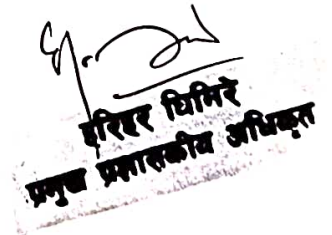 हरिहर घिमिरे
प्रमुख प्रशासकीय अधिकृत